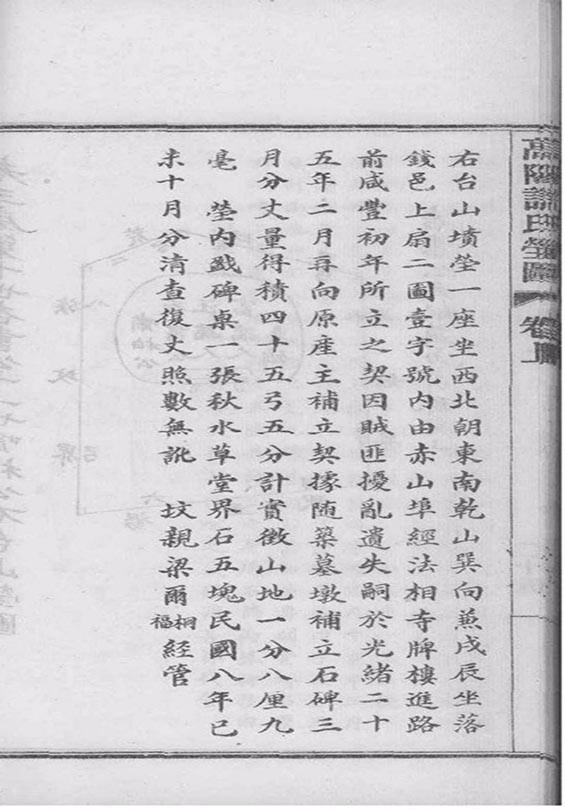 高陽許氏塋圖 卷上
右台山墳塋一座坐西北朝東南乾山巽向蒹戌辰坐落
錢邑上扇二圖壹字號內由赤山埠經法相寺牌樓進路
前咸豐初年所立之契因賊匪擾亂遺失嗣於光緒二十
五年二月再向原產主補立契據随築墓墩補立石碑三
月分丈量得積四十五弓五分計實徵山地一分八厘九
毫 塋內豎碑桌一張秋水草堂界石五塊民國八年已
未十月分清查復丈照數無訛 坟親梁爾桐福經管